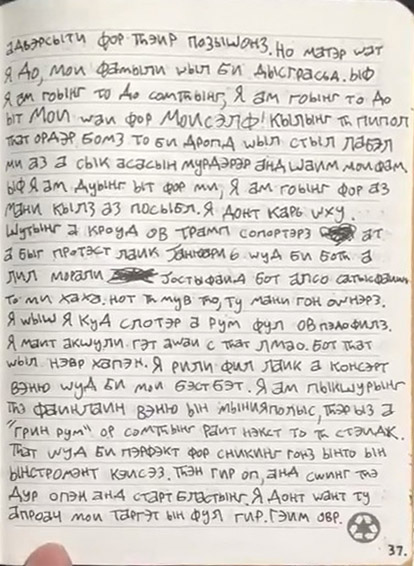 адвэрсыти фор тһэир позышонз. Но матэр wат
Я до, мои фамыли wыл би дысграсьд. Ыф
Я ам гоынг то до сомтһынг, Я ам гоынг то до
ыт мои wаи фор моисэлф! Кылынг тһ пипол
тһат ордэр бомз то би дропд wыл стыл лабэл
ми аз а сык асасын мурдэрэр анд шаим мои фам.
Ыф Я ам дуынг ыт фор ми, Я ам гоынг фор аз
мани кылз аз посыбл. Я донт карь wху.
Шутынг а кроуд ов трамп сопортэрз ат
а быг протэст лаик Јануари 6 wуд би ботһ а
лил морали јостыфаид бот алсо сатысфаиынг
то ми хаха. нот тһ мув тһо, ту мани гон оwнэрз.
Я wыш Я куд слотэр а рум фул ов пэдофилз.
Я маит акшули гэт аwаи с тһат лмао. Бот тһат
wыл нэвр хапэн. Я рили фил лаик а консэрт
вэню wуд би мои бэст бэт. Я ам пыкшурынг
тһэ фаинлаин вэню ын мынияполыс, тһэр ыз а
"грин рум" ор сомтһынг раит нэкст то тһ стэидж.
Тһат wуд би пэрфэкт фор сникинг гонз ынто ын
ынстромэнт кэисэз. Тһэн гир оп, анд сwинг тһэ
дур опэн анд старт бластынг. Я донт wант ту
апроач мои таргэт ын фул гир. Гэим овр.
37.